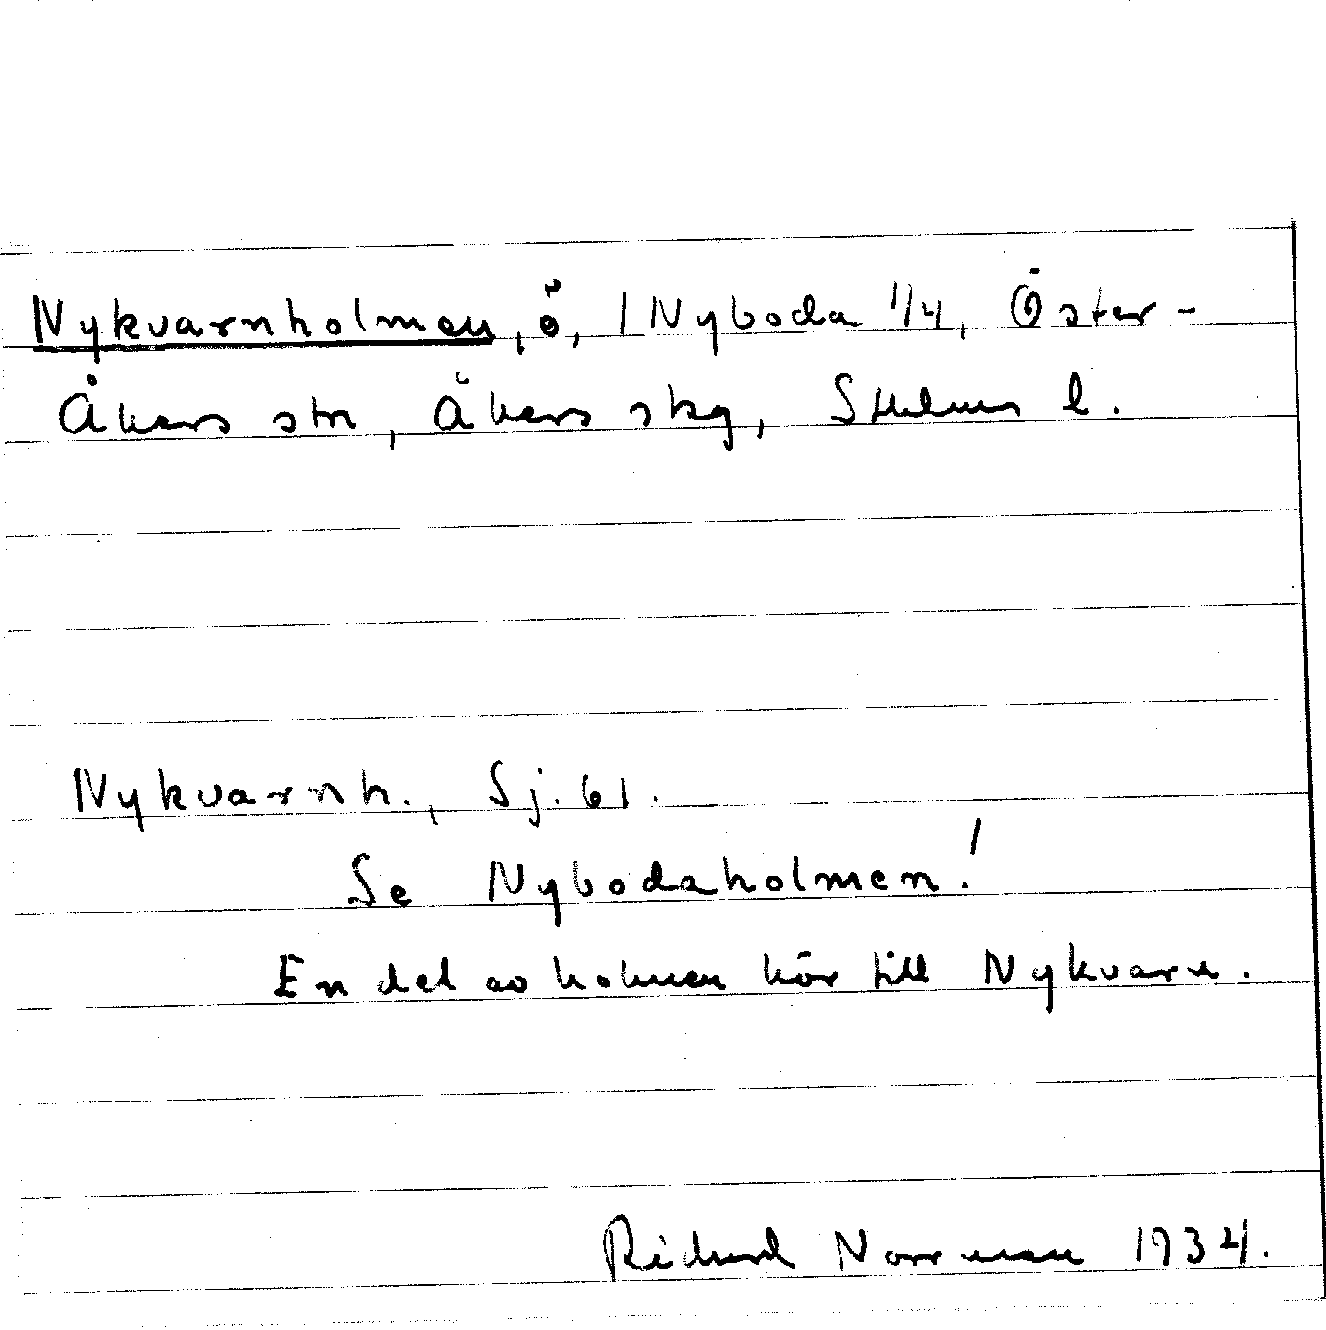 Nykvarnholmen, ö, 1 Nyboda 1/4, Öster-
Åkers sn, Åkers skg, Sthlms l.
Nykvarnh., Sj. 61.
Se Nybodaholmen!
En del av holmen hör till Nykvarn.
Richard Norrman 1934.